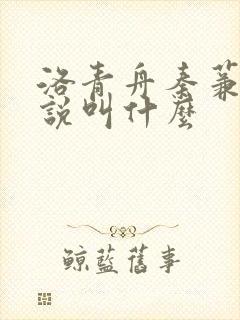 洛青舟秦蒹
說叫什麼
鯨藍舊事